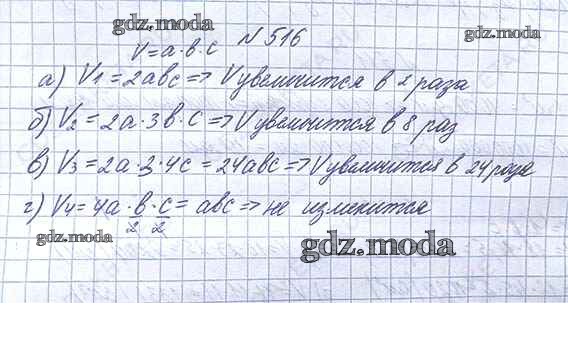 gdz.moda
gdz.moda
V=a·b·c N 516
а) V1 = 2abc => V увеличится в 2 раза
б) V2 = 2a·3b·c => V увеличится в 8 раз
в) V3 = 2a·3·4c = 24abc => V увеличится в 24 раза
г) V4 = 4a·b/2·c/2 = abc => не изменится
gdz.moda
gdz.moda
gdz.moda